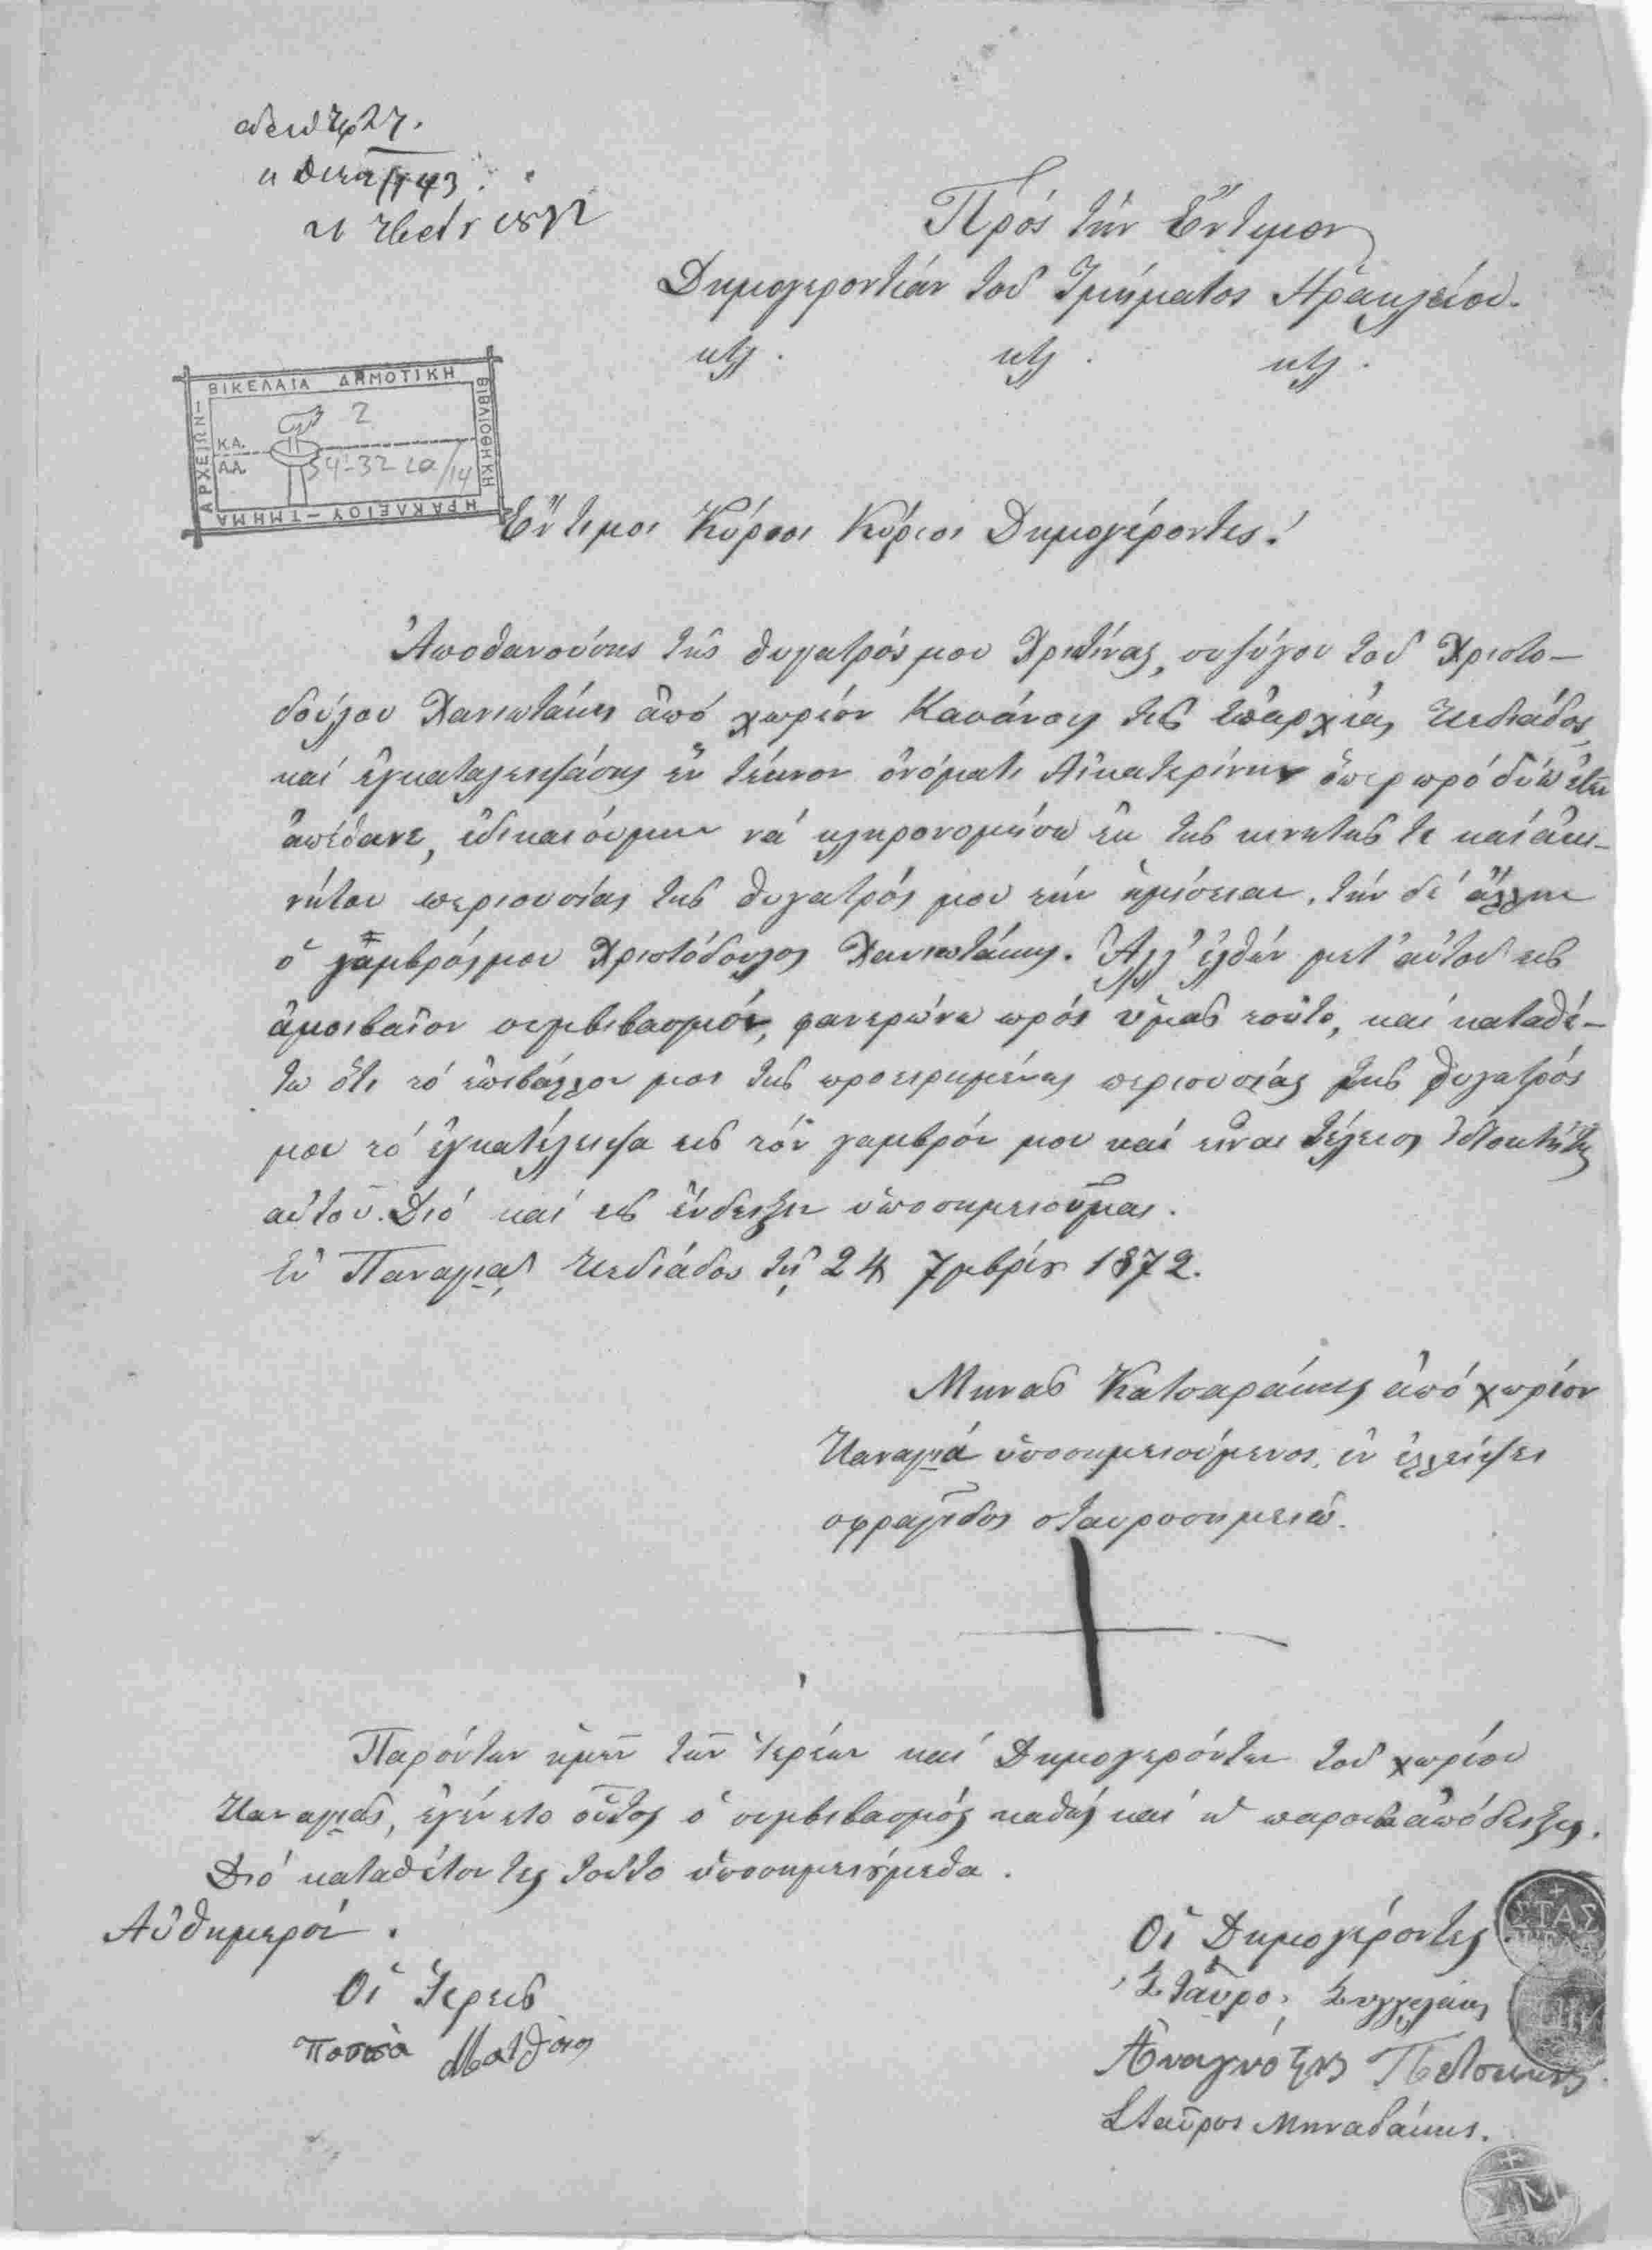 Πρός τήν Ἔντιμον
Δημογεροντίαν τοῦ Τμήματος Ἡρακλείου.
κτλ. κτλ. κτλ.
ΒΙΚΕΛΑΙΑ ΔΗΜΟΤΙΚΗ
ΒΙΒΛΙΟΘΗΚΗ
ΗΡΑΚΛΕΙΟΥ – ΤΜΗΜΑ
ΑΡΧΕΙΩΝ –
2
Κ.Α.
Α.Α. 54-32 /14
Ἔντιμοι Κύριοι Κύριοι Δημογέροντες!
Ἀποθανούσης τῆς θυγατρός μου Χριστίνας, συζύγου τοῦ Χριστο–
δούλου Χανιωτάκη ἀπό χωρίον Κασάνους τῆς ἐπαρχίας Πεδιάδος,
καί ἐγκαταλειψάσης ἕν τέκνον ὀνόματι Αἰκατερίνην ὅπερ πρό δύω ἐτῶν
ἀπέθανε, ἐδικαιούμην νά κληρονομήσω ἐκ τῆς κινητῆς τε καί ἀκι–
νήτου περιουσίας τῆς θυγατρός μου τήν ἡμίσειαν, τήν δέ ἄλλην
ὁ γαμβρός μου Χριστόδουλος Χανιωτάκης. Ἀλλ' ἐλθών μετ' αὐτοῦ εἰς
ἀμοιβαῖον συμβιβασμόν, φανερώνω πρός ὑμᾶς τοῦτο, καί καταθέ–
τω ὅτι τό ἐπιβάλλον μοι τῆς προειρημένης περιουσίας τῆς θυγατρός
μου τό ἐγκατέλειψα εἰς τόν γαμβρόν μου καί εἶναι τέλειος ἰδιοκτήτης
αὐτοῦ. Διό καί εἰς ἔνδειξιν ὑποσημειοῦμαι.
Ἐν Παναγιᾷ Πεδιάδος τῇ 24 7μβρίου 1872.
Μηνᾶς Κατσαράκης ἀπό χωρίον
Παναγιά ὑποσημειούμενος, ἐν ἐλλείψει
σφραγίδος σταυροσημειῶ.
Παρόντων ἡμῶν τῶν Ἱερέων καί Δημογερόντων τοῦ χωρίου
Παναγιᾶς, ἐγένετο οὗτος ὁ συμβιβασμός καθώς καί ἡ παροῦσα ἀπόδειξις.
Διό καταθέτοντες τοῦτο ὑποσημειούμεθα.
Αὐθημερόν.
Οἱ Δημογέροντες
Οἱ Ἱερεῖς
Σταῦρος
παπα Ματθαῖος
Ἀναγνόστης
Σταῦρος Μηναδάκης.
ΣΤΑΣ
ΣΜ